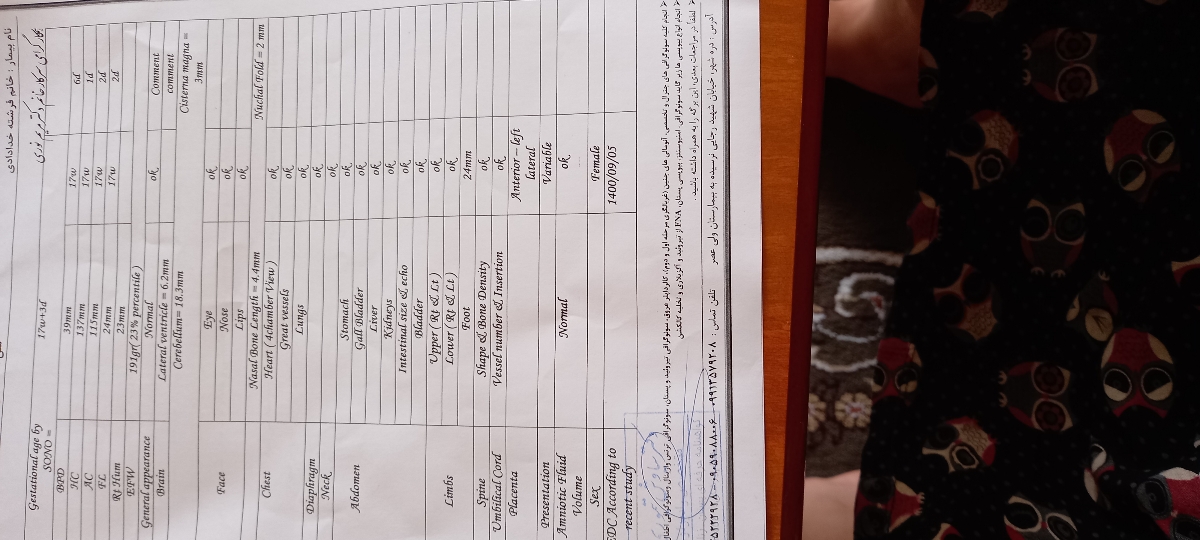 نام بیمار : خانم فرشته خدادادی
Gestational age by SONO = 17w+3d
BPD 39mm 17w 6d
HC 137mm 17w 1d
AC 115mm 17w 2d
FL 24mm 17w 2d
Rt Hum 23mm
EFW 191gr( 23% percentile)
General appearance Normal ok Comment
Brain Lateral ventricle = 6.2mm comment
Cerebellum= 18.3mm Cisterna magna = 3mm
Face Eye ok
Nose ok
Lips ok
Nasal Bone Length = 4.4mm Nuchal Fold = 2 mm
Chest Heart ( 4chamber View) ok
Great vessels ok
Lungs ok
Diaphragm ok
Neck ok
Abdomen Stomach ok
Gall Bladder ok
Liver ok
Kidneys ok
Intestinal size & echo ok
Bladder ok
Limbs Upper ( Rt & Lt) ok
Lower ( Rt & Lt) ok
Foot 24mm
Spine Shape & Bone Density ok
Umbilical Cord Vessel number & Insertion ok
Placenta Anterior – left lateral
Presentation Variable
Amniotic Fluid Volume Normal ok
Sex Female
EDC According to recent study 1400/09/05
لطفا در مراجعات بعدی، این برگه را به همراه داشته باشید.
آدرس : دره شهر، خیابان شهید رجایی نرسیده به بیمارستان ولی عصر تلفن تماس :